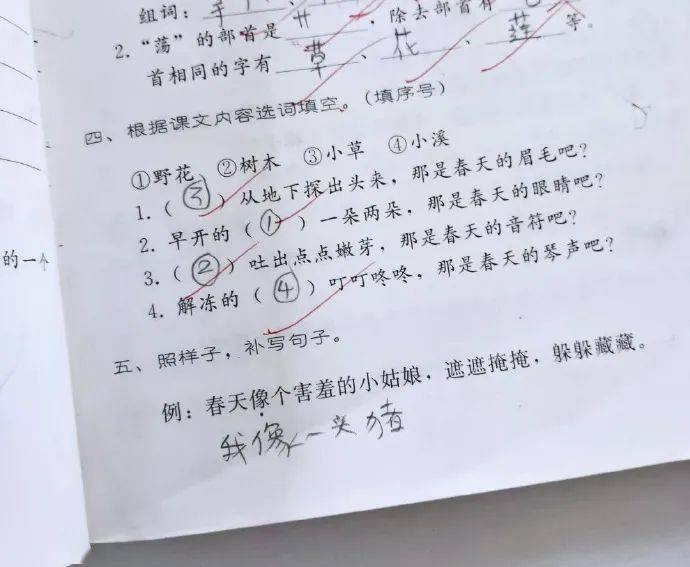 组词：手
2.“荡”的部首是 艹 ，除去部首有
首相同的字有 草 、 花 、 莲 等。
四、根据课文内容选词填空。（填序号）
①野花 ②树木 ③小草 ④小溪
1.（ ③ ）从地下探出头来，那是春天的眉毛吧？
2. 早开的（ ① ）一朵两朵，那是春天的眼睛吧？
3.（ ② ）吐出点点嫩芽，那是春天的音符吧？
4. 解冻的（ ④ ）叮叮咚咚，那是春天的琴声吧？
的一个
五、照样子，补写句子。
例：春天像个害羞的小姑娘，遮遮掩掩，躲躲藏藏。
我像一头猪